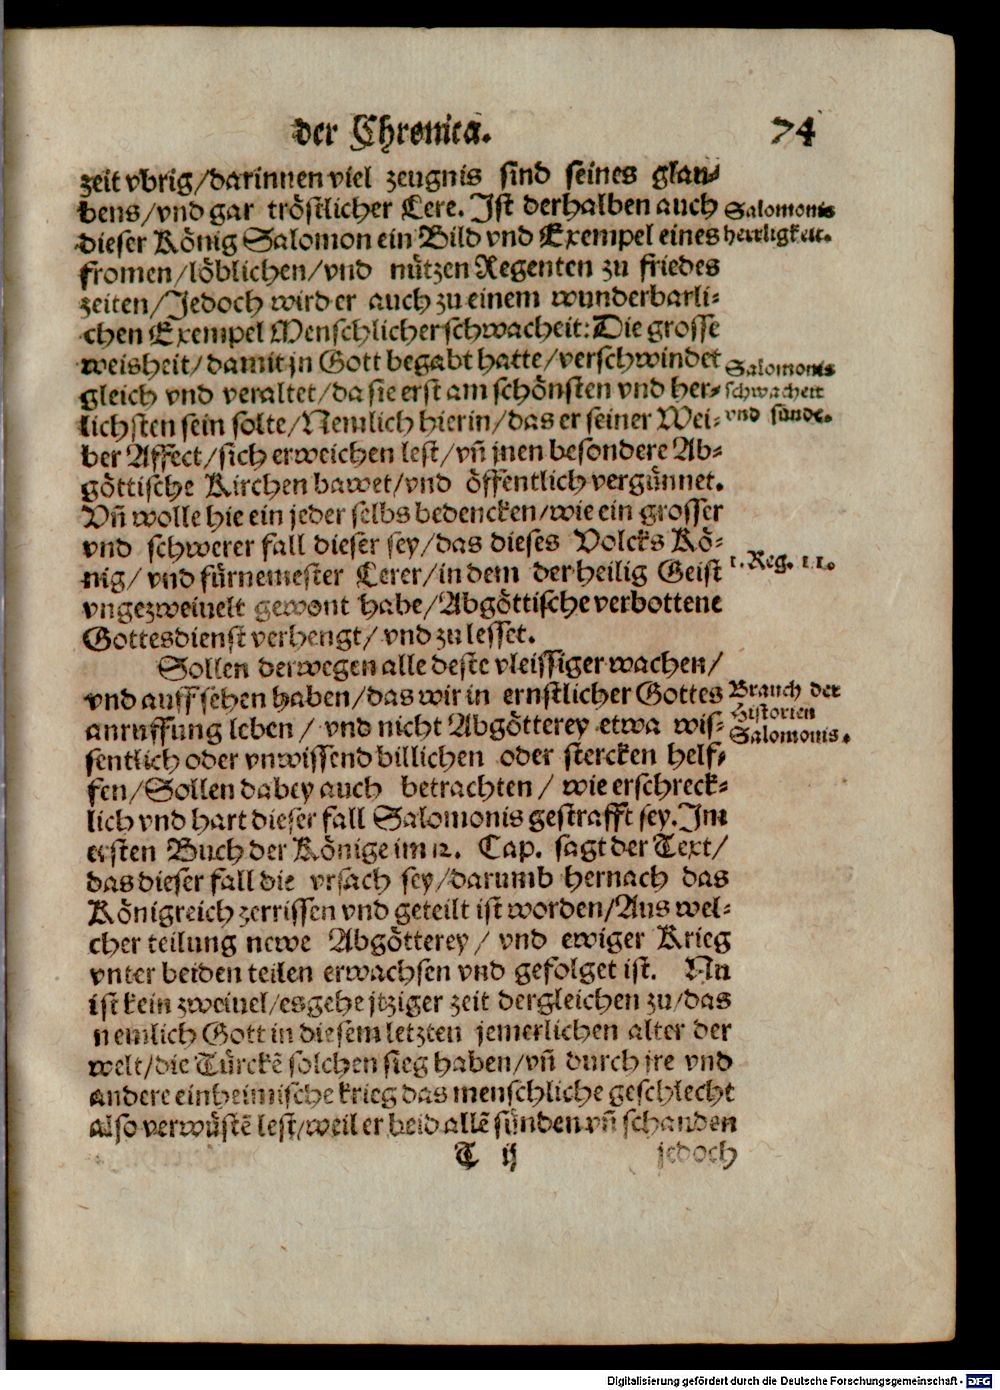 der Chronica. 74
zeit vbrig/darinnen viel zeugnis sind seines glau-
bens/vnd gar tröstlicher Lere. Ist derhalben auch
dieser König Salomon ein Bild vnd Exempel eines
fromen/löblichen/vnd nützen Regenten zu friedes
zeiten/Jedoch wird er auch zu einem wunderbarli-
chen Exempel Menschlicher schwacheit: Die grosse
weisheit/damit jn Gott begabt hatte/verschwindet
gleich vnd veraltet/da sie erst am schönsten vnd her-
lichsten sein solte/Nemlich hierin/das er seiner Wei-
ber Affect/sich erweichen lest/vñ jnen besondere Ab-
göttische Kirchen bawet/vnd öffentlich vergünnet.
Vñ wolle hie ein jeder selbs bedencken/wie ein grosser
vnd schwerer fall dieser sey/das dieses Volcks Kö-
nig/vnd fürnemester Lerer/in dem der heilig Geist
vngezweiuelt gewont habe/Abgöttische verbottene
Gottesdienst verhengt/vnd zu lesset.
Salomonis
herrligkeit.
Salomonis
schwacheit
vnd sünde.
1. Reg. 11.
Sollen derwegen alle deste vleissiger wachen/
vnd auffsehen haben/das wir in ernstlicher Gottes
anruffung leben/vnd nicht Abgötterey etwa wis-
sentlich oder vnwissend billichen oder stercken helf-
fen/Sollen dabey auch betrachten/wie erschreck-
lich vnd hart dieser fall Salomonis gestrafft sey. Im
ersten Buch der Könige im 12. Cap. sagt der Text/
das dieser fall die vrsach sey/darumb hernach das
Königreich zerrissen vnd geteilt ist worden/Aus wel-
cher teilung newe Abgötterey/vnd ewiger Krieg
vnter beiden teilen erwachsen vnd gefolget ist. Nu
ist kein zweiuel/es gehe jtziger zeit dergleichen zu/das
nemlich Gott in diesem letzten jemerlichen alter der
welt/die Türckē solchen sieg haben/vñ durch jre vnd
andere einheimische krieg das menschliche geschlecht
also verwüstē lest/weil er beid allē sünden vñ schanden
Brauch der
Historien
Salomonis.
T ij jedoch
Digitalisierung gefördert durch die Deutsche Forschungsgemeinschaft - DFG